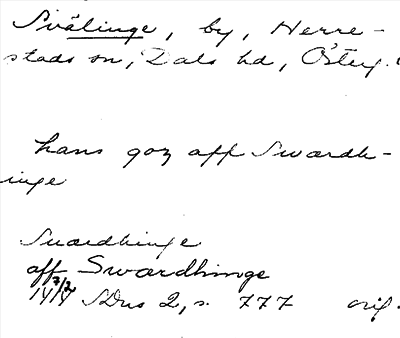 Svälinge, by, Herre-
stads sn, Dals hd, Österg.
hans goz aff Swærdh-
inge
Suærdhinge
aff Swærdhinge
SDns 2, s. 777 orig.